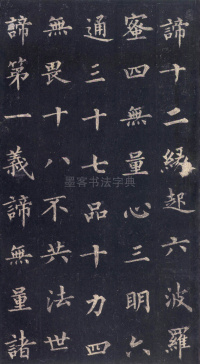 諦十二緣起六波羅
蜜四無量心三明六
通三十七品十力四
無畏十八不共法世
諦第一義諦無量諸
墨客书法字典